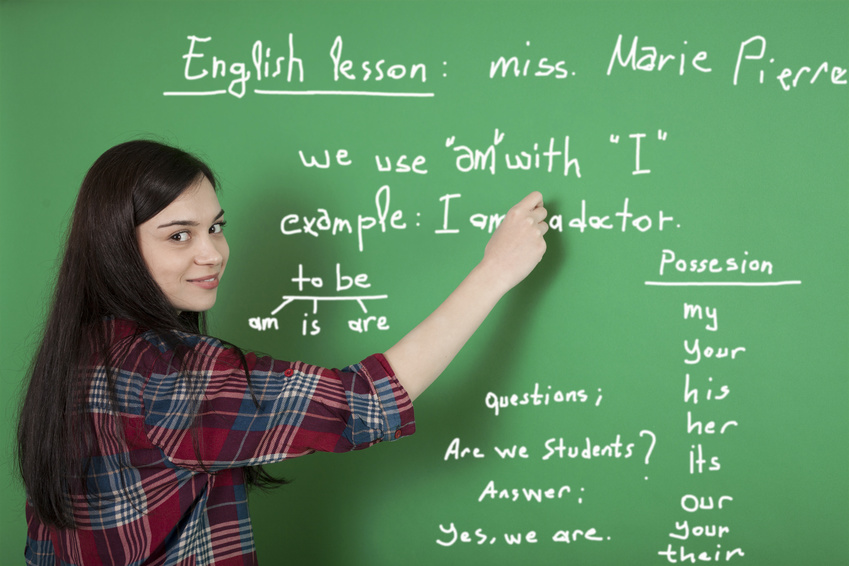 English lesson: miss. Marie Pierre
we use "am" with "I"
example: I am a doctor.
to be
am is are
Possesion
my
your
his
her
its
our
your
their
questions;
Are we Students?
Answer;
Yes, we are.